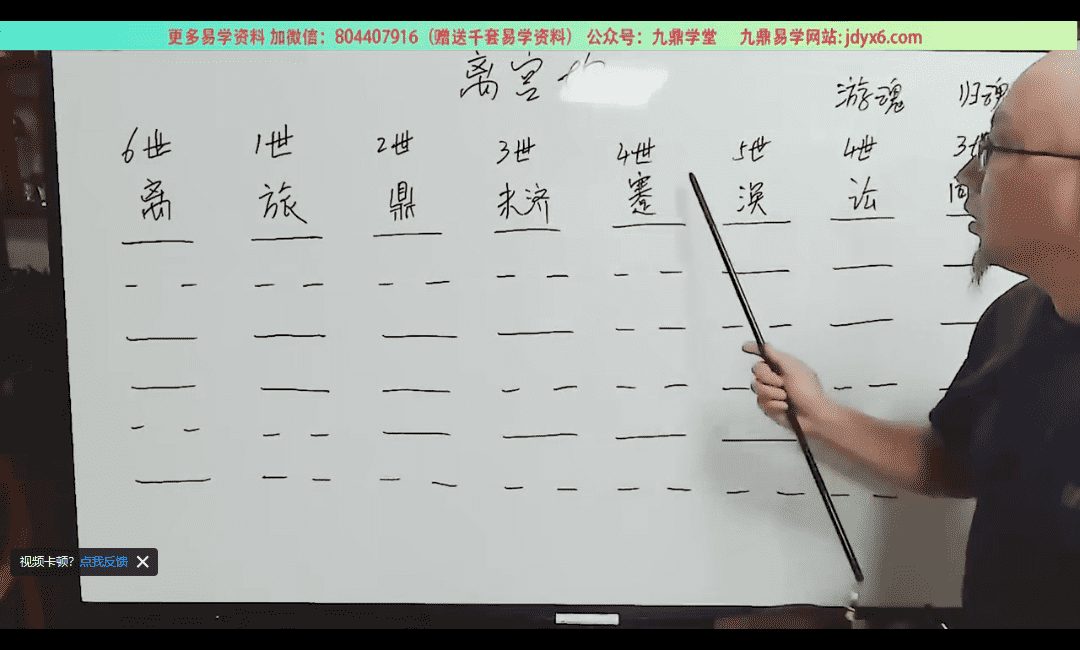 更多易学资料 加微信：804407916（赠送千套易学资料） 公众号：九鼎学堂 九鼎易学网站:jdyx6.com
离宫
游魂 归魂
6世 1世 2世 3世 4世 5世 4世 3世
离 旅 鼎 未济 涣 讼
视频卡顿？点我反馈